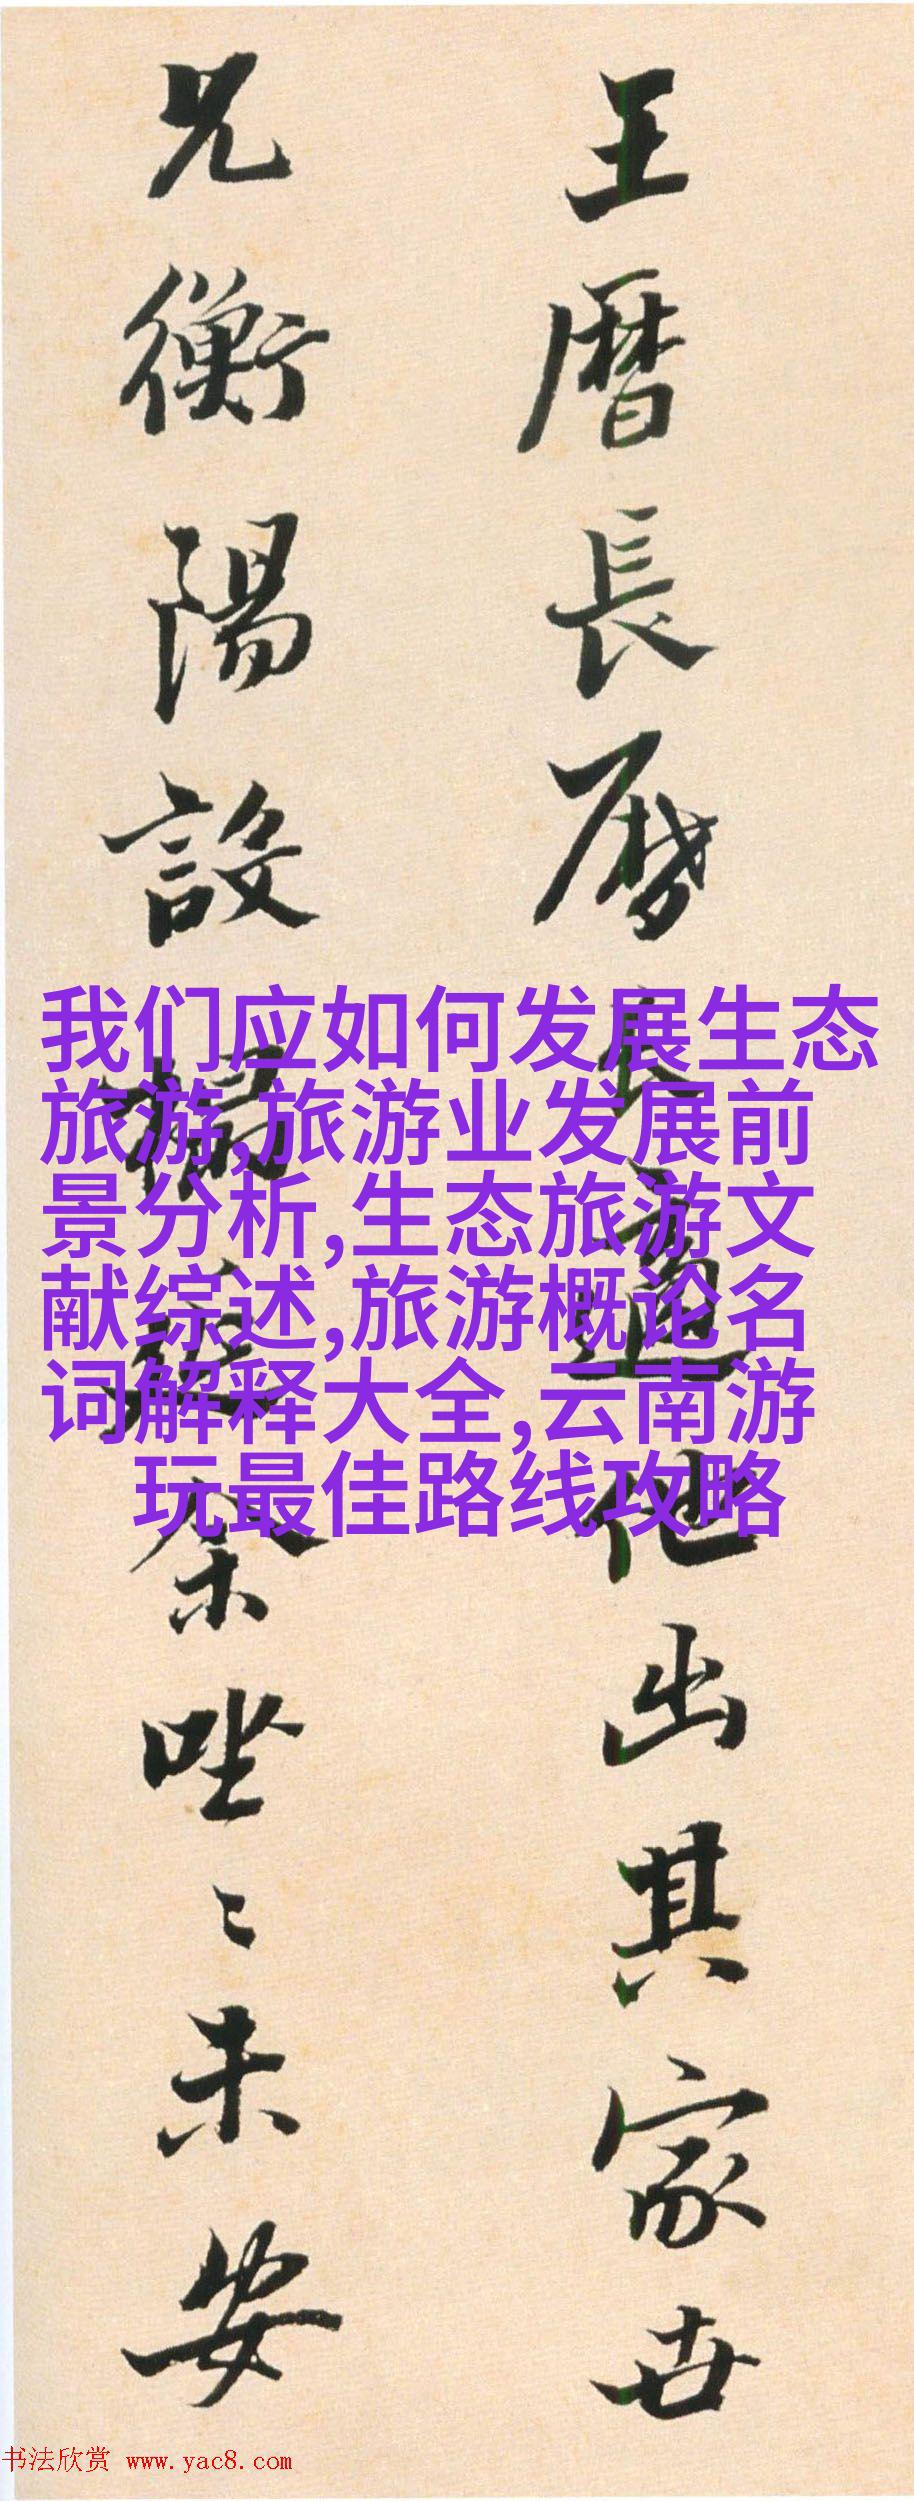 王曆長曆
他出其家世
兄衡陽設
祭唑〻未安
我们应如何发展生态
旅游,旅游业发展前
景分析,生态旅游文
献综述,旅游概论名
词解释大全,云南游
玩最佳路线攻略
书法欣赏 www.yac8.com